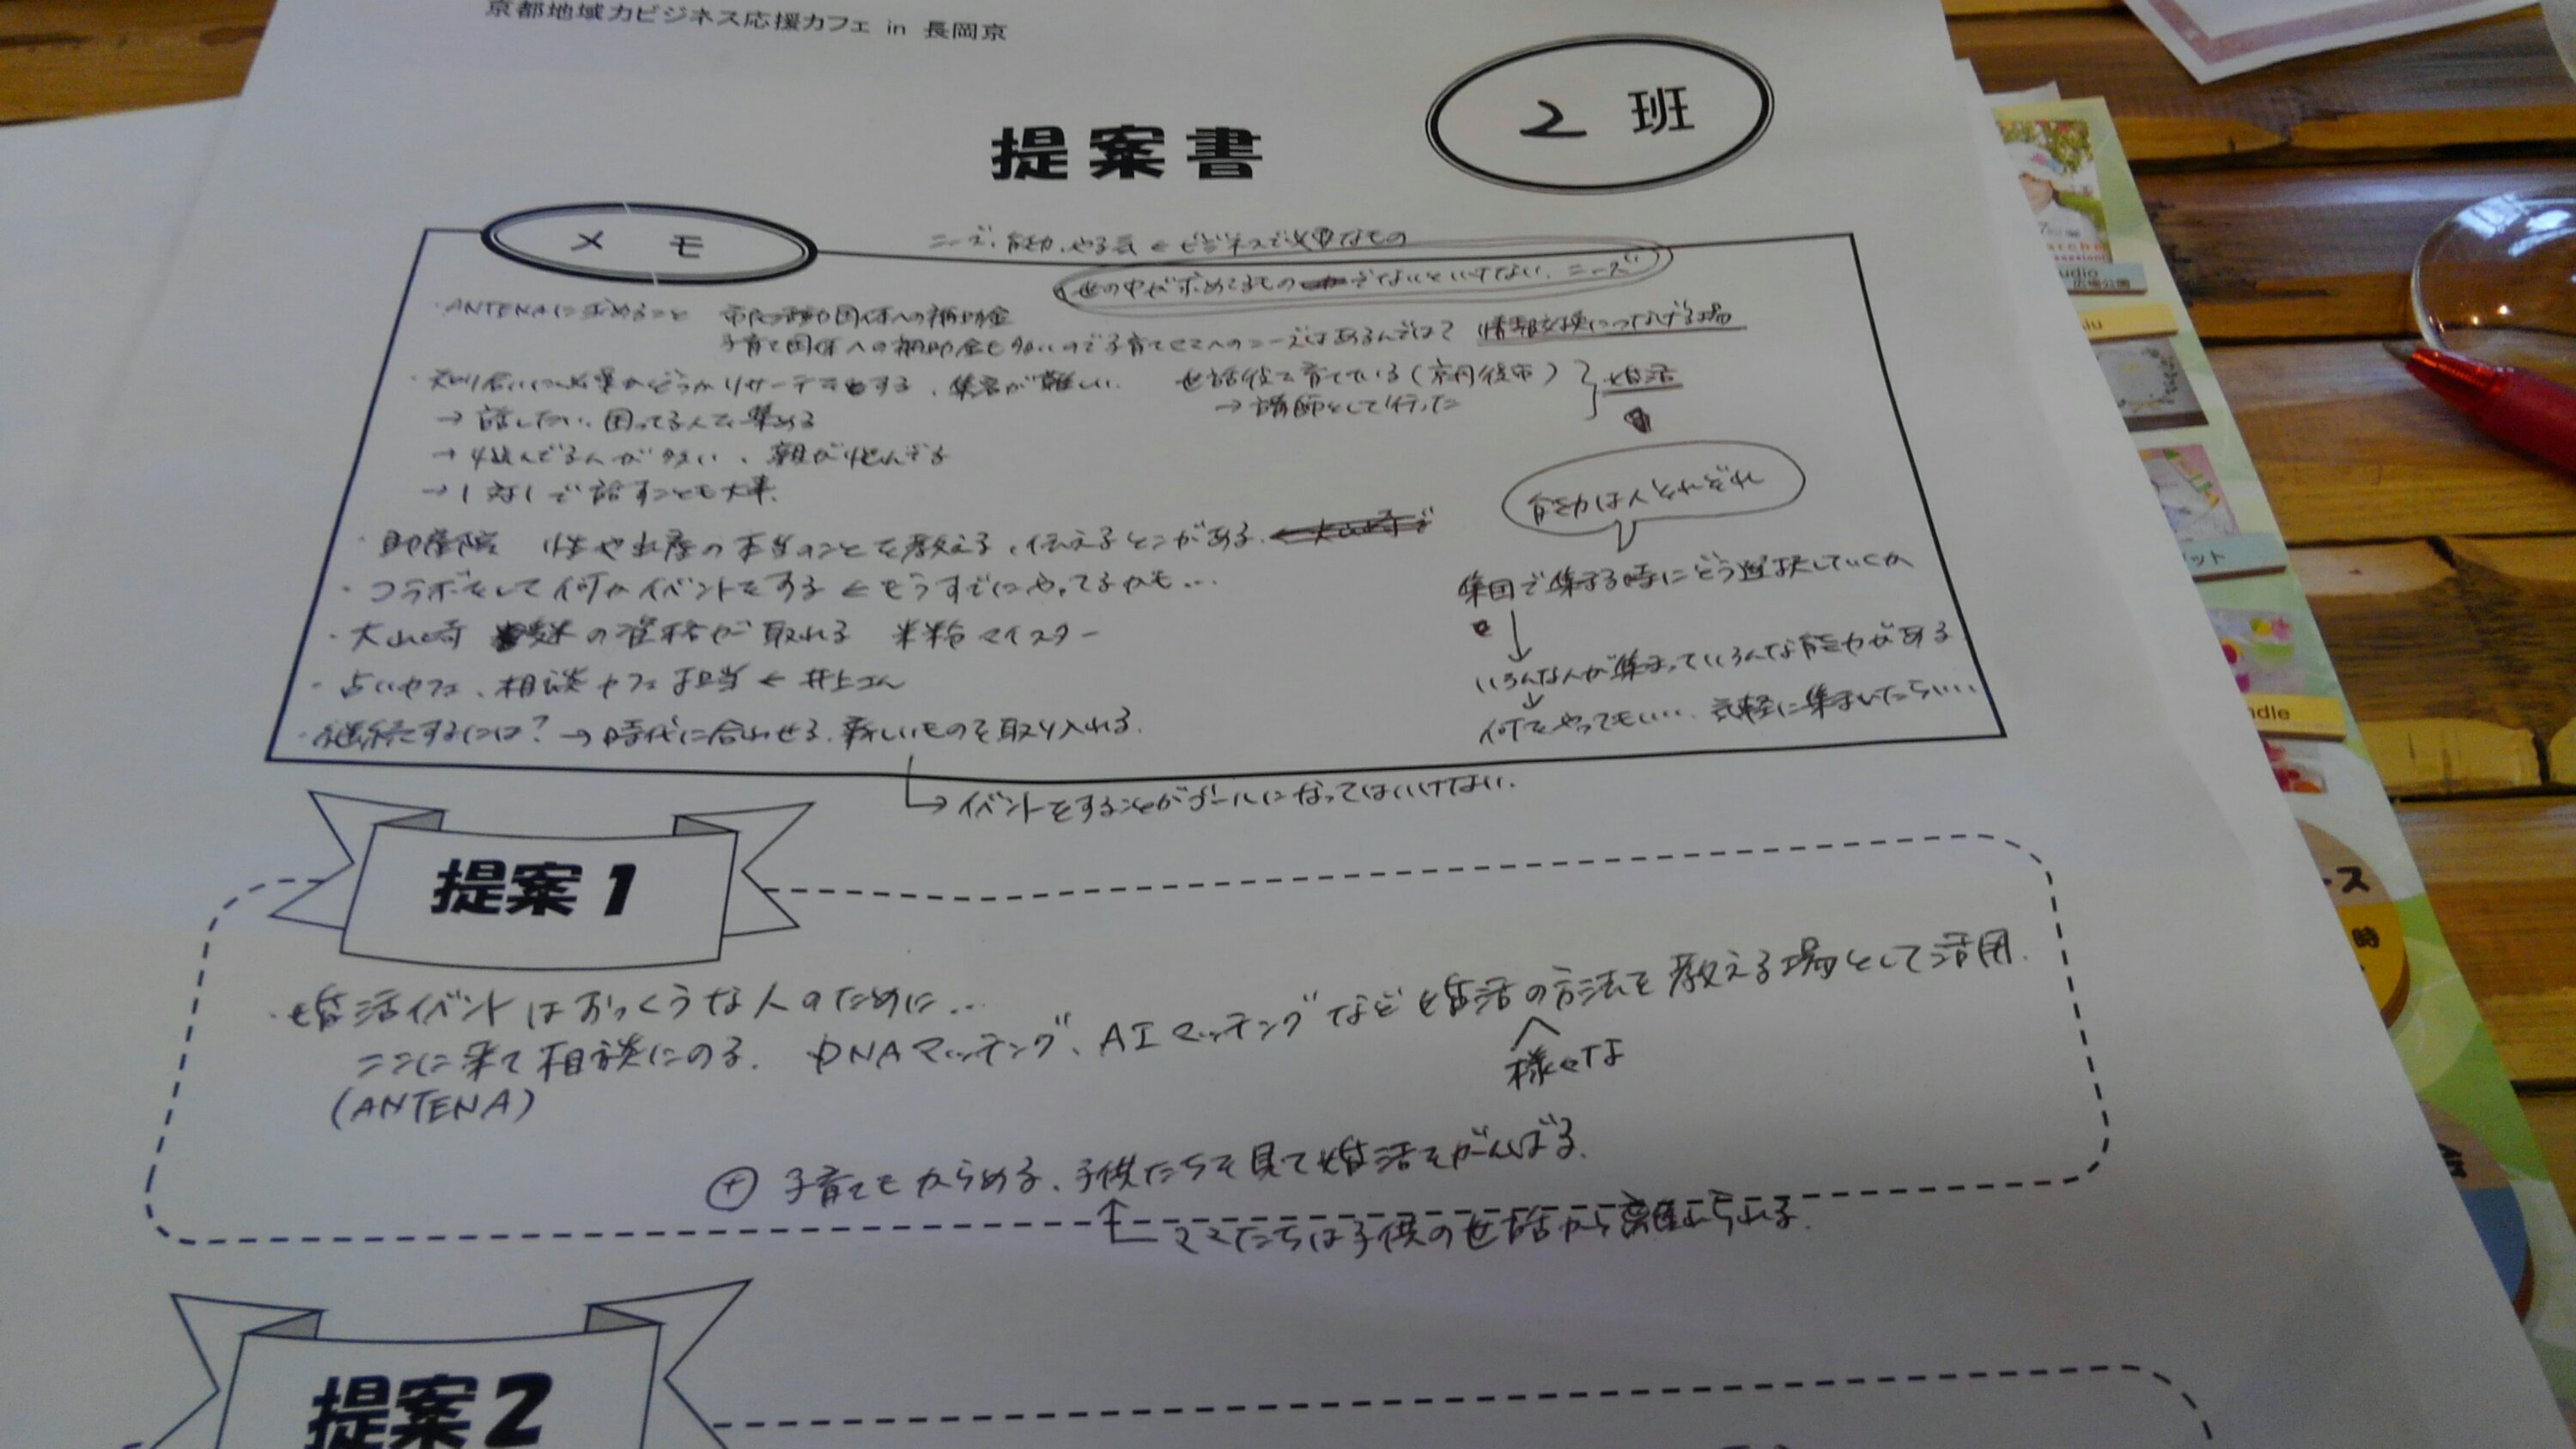 京都地域力ビジネス応援カフェ in 長岡京
提案書
2 班
メ モ
ニーズ、能力、やる気 ← ビジネスで必要なもの
世の中が求めてるものでないといけない、ニーズ
・ANTENAに求めること 市民活動団体への補助金
子育て団体への補助金も多いので子育てママへのニーズはあるんでは? 情報交換につなげる場
・知り合いに必要かどうかリサーチする、集客が難しい
世話役を育てている(京丹後市)
婚活
→ 話したい、困ってる人を集める
→ 講師として行った
→ 悩んでる人が多い、親が悩んでる
→ 1対1で話すことも大事
能力は人それぞれ
・助産院 性や出産の本当のことを教える、伝えるとこがある
・コラボをして何かイベントをする ← もうすでにやってるかも…
集団で集まる時にどう選択していくか
・大山崎 の資格が取れる マイスター
いろんな人が集まっていろんな能力がある
・占いカフェ、相談カフェ担当 ← 井上さん
何をやってもいい… 気軽に集まれたらいい…
・継続するには? → 時代に合わせる、新しいものを取り入れる
→ イベントをすることがゴールになってはいけない
提案1
・婚活イベントはおっくうな人のために…
ここに来て相談にのる。 DNAマッチング、AIマッチングなど婚活の方法を教える場として活用
様々な
(ANTENA)
⊕ 子育てもからめる、子供たちを見て婚活をがんばる
ママたちは子供の世話から離れられる
提案2
ース
時
ット
ndle
udio